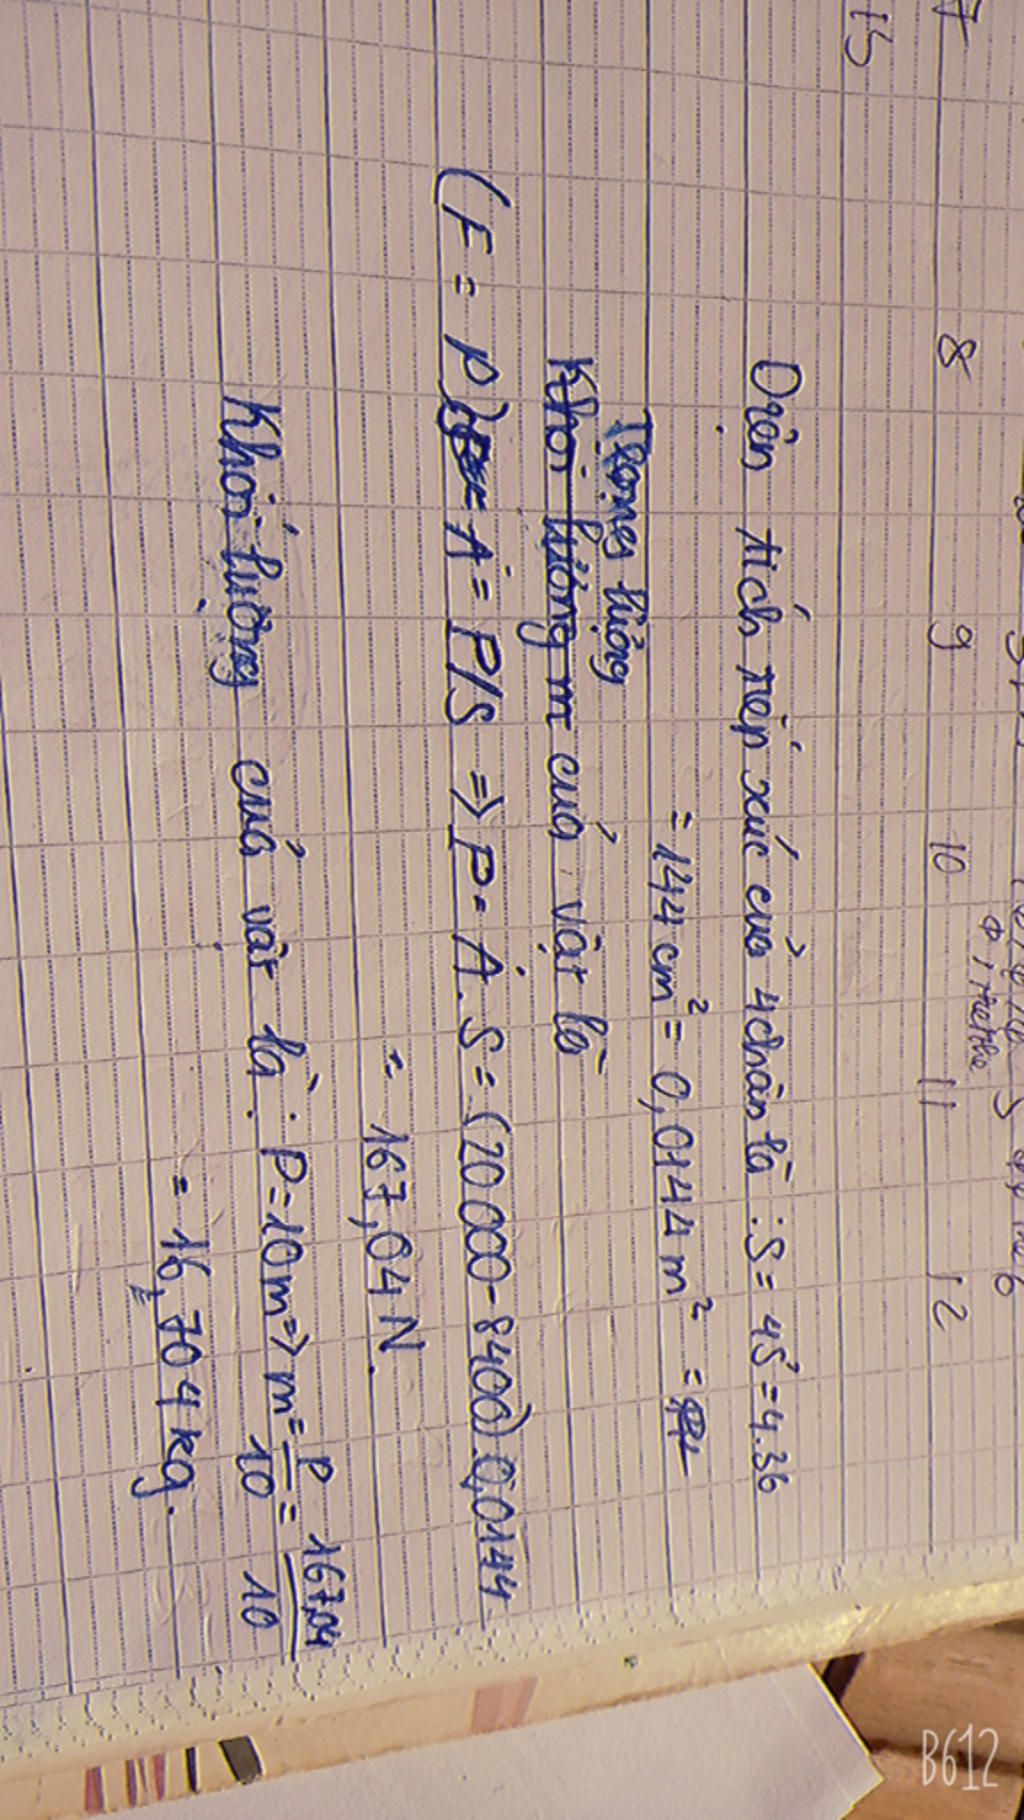 7 8 9 10 11 12
15
Diện tích tiếp xúc của 4 chân là : S = 4S' = 4.36
= 144 cm² = 0,0144 m² =
Trọng lượng
Khối lượng m của vật là
(F = P) A = P/S => P = A . S = (20 000 - 8400).0,0144
= 167,04 N.
Khối lượng của vật là : P = 10m => m = P/10 = 167,04/10
= 16,704 kg.
B612